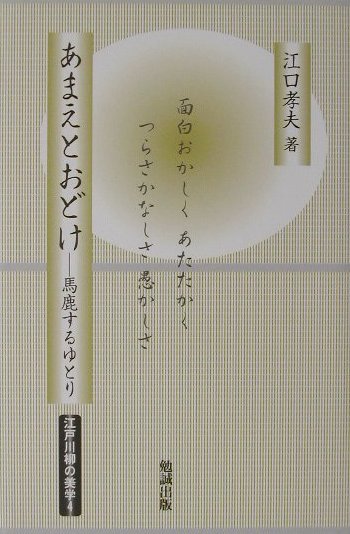 江口孝夫 著
面白おかしく あたたかく
つらさかなしさ愚かしさ
あまえとおどけ
―馬鹿するゆとり
江戸川柳の美学4
勉誠出版